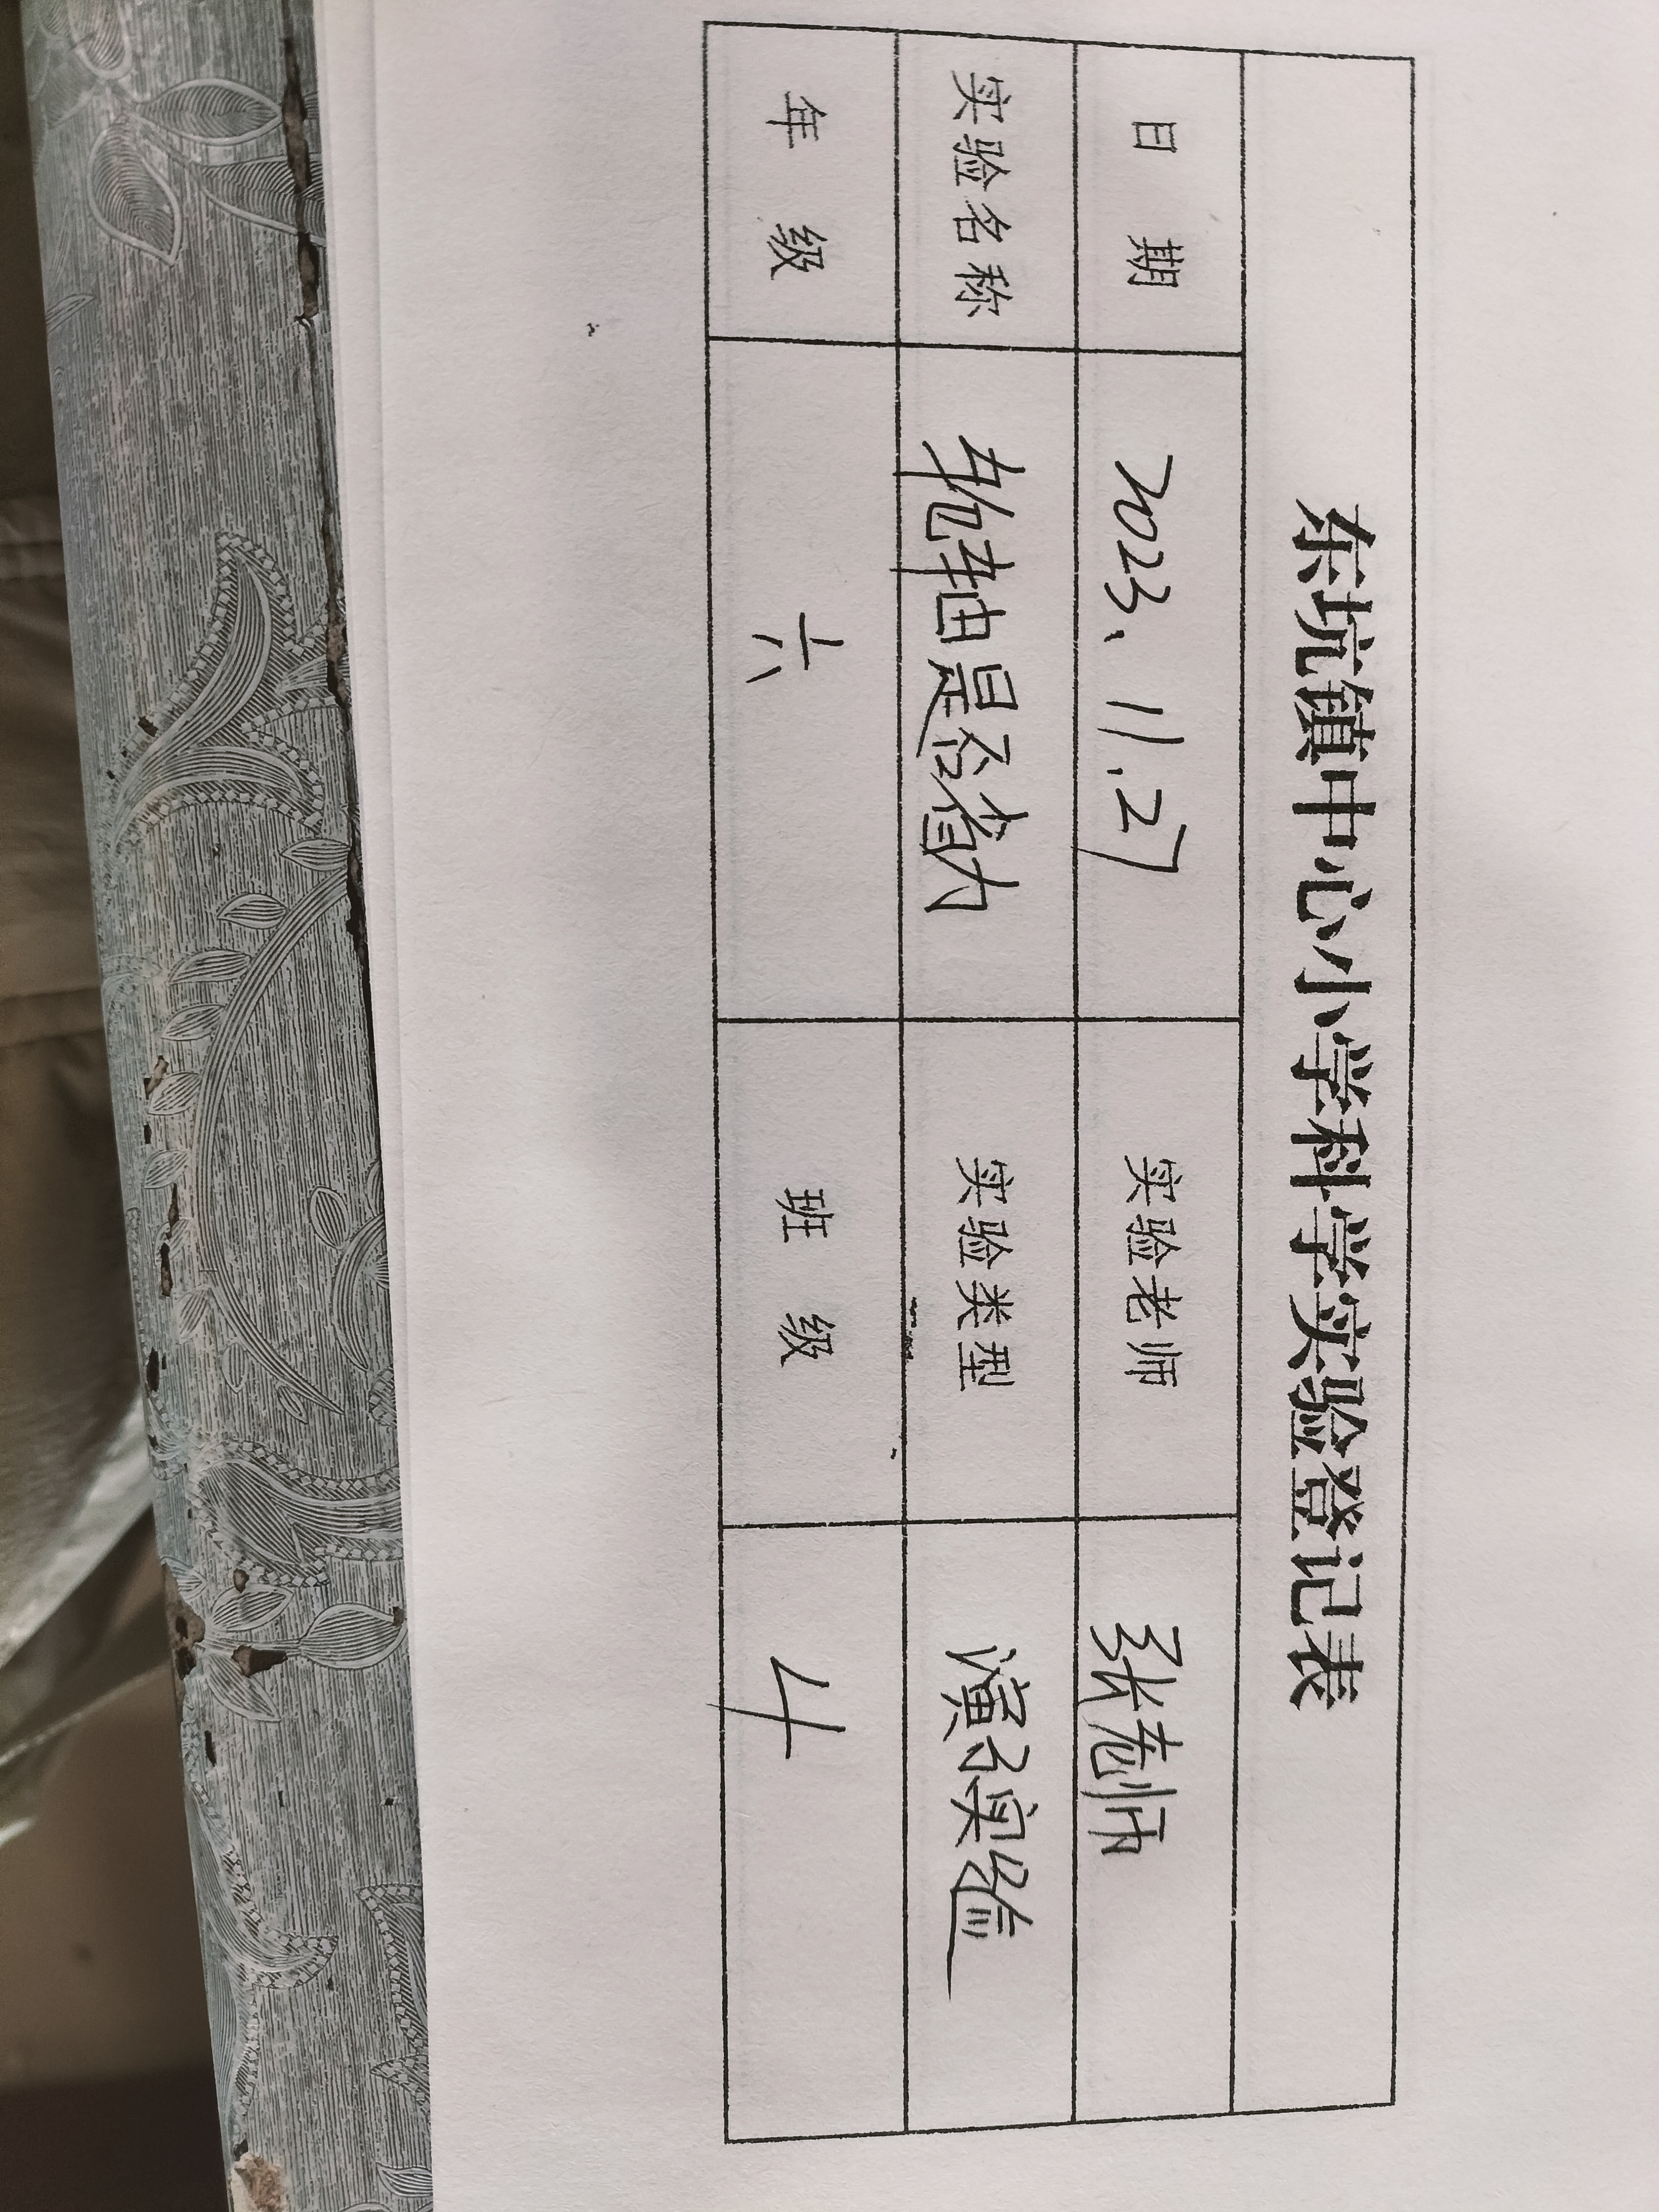 东坑镇中心小学科学实验登记表
日 期 2023、11.27 实验老师 张老师
实验名称 轮轴是否省力 实验类型 演示实验
年 级 六 班 级 4